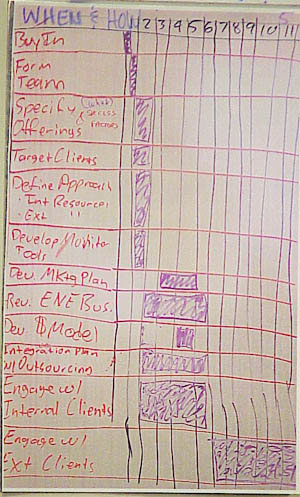 WHEN & HOW 2 3 4 5 6 7 8 9 10 11
Buy In
Form
Team
Specify (what)
Offerings
Target Clients
Define Approach
· Int Resources
· Ext "
Develop Monitor
Tools
Dev. Mktg Plan
Rev. ENE Bus.
Dev. $ Model
Integration Plan
w/ Outsourcing
Engage w/
Internal Clients
Engage w/
Ext Clients